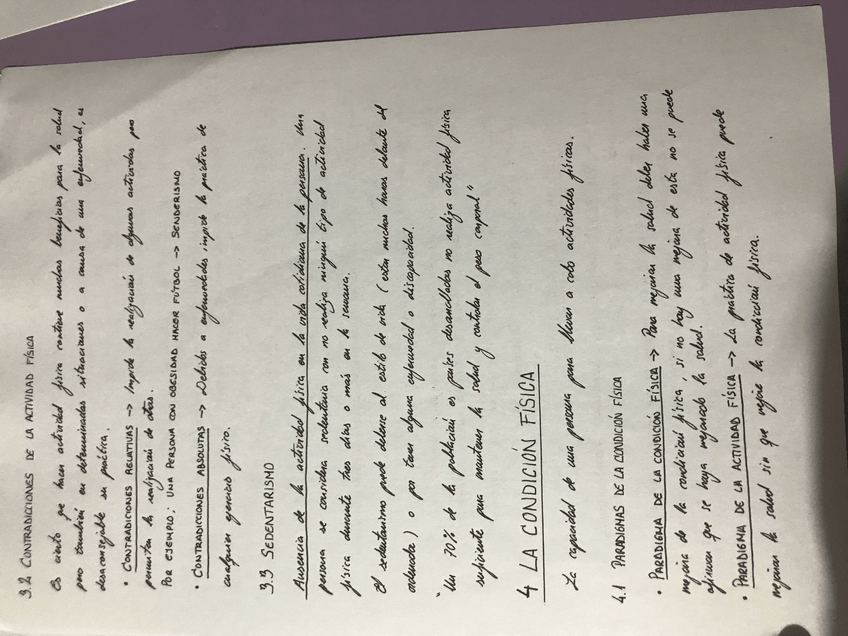 3.2 CONTRADICIONES DE LA ACTIVIDAD FÍSICA
Es cierto que hacer actividad física contiene muchos beneficios para la salud
pero también en determinadas situaciones o a causa de una enfermedad, es
desaconsejable su práctica.
• CONTRADICIONES RELATIVAS → Impide la realización de algunas actividades pero
permiten la realización de otras.
POR EJEMPLO: UNA PERSONA CON OBESIDAD HACER FÚTBOL → SENDERISMO
• CONTRADICCIONES ABSOLUTAS → Debidos a enfermedades impide la práctica de
cualquier ejercicio físico.
3.3 SEDENTARISMO
Ausencia de la actividad física en la vida cotidiana de la persona. Una
persona se considera sedentaria con no realiza ningún tipo de actividad
física durante tres días o más en la semana.
El sedentarismo puede deberse al estilo de vida (estar muchas horas delante del
ordenador) o por tener alguna enfermedad o discapacidad.
"Un 70% de la población es países desarrollados no realiza actividad física
suficiente para mantener la salud y controlar el peso corporal"
4 LA CONDICIÓN FÍSICA
La capacidad de una persona para llevar a cabo actividades físicas.
4.1 PARADIGMAS DE LA CONDICIÓN FÍSICA
• PARADIGMA DE LA CONDICIÓN FÍSICA → Para mejorar la salud debe haber una
mejoria de la condición física, si no hay una mejora de esta no se puede
afirmar que se haya mejorado la salud.
• PARADIGMA DE LA ACTIVIDAD FÍSICA → La práctica de actividad física puede
mejorar la salud sin que mejore la condición física.